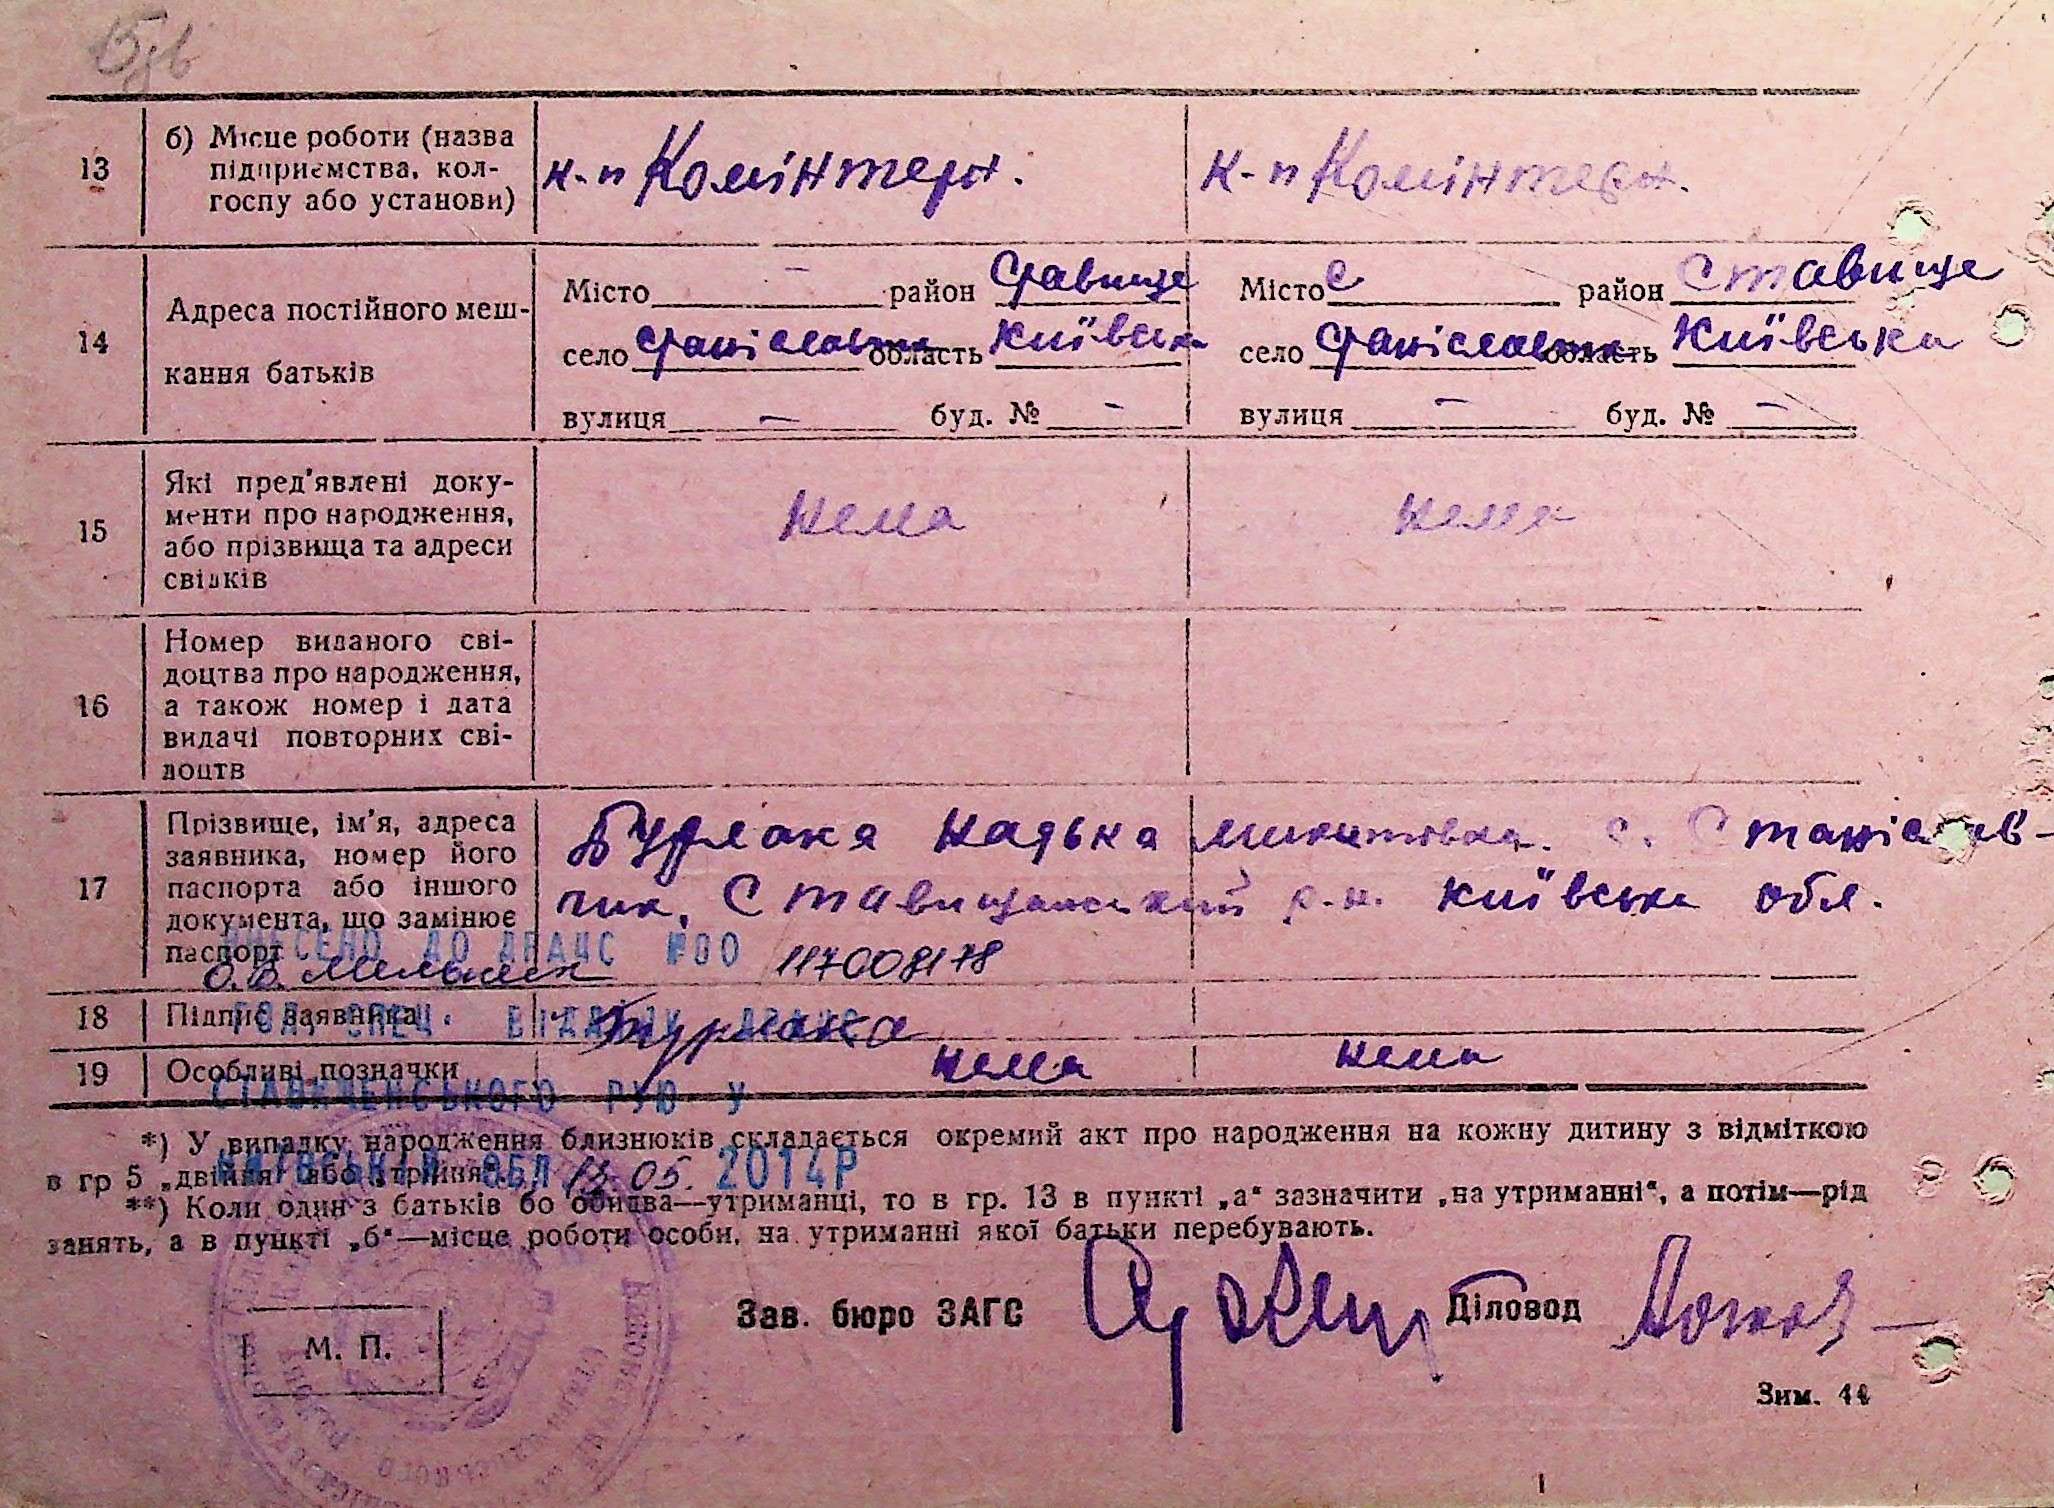 13
б) Місце роботи (назва
підприємства, кол-
госпу або установи)
к-п Комінтерн.
к-п Комінтерн.
14
Адреса постійного меш-
кання батьків
Місто – район Ставище
село Станіславчик область Київська
вулиця – буд. № –
Місто с район Ставище
село Станіславчик область Київська
вулиця – буд. № –
15
Які пред'явлені доку-
менти про народження,
або прізвища та адреси
свідків
нема
нема
16
Номер виданого сві-
доцтва про народження,
а також номер і дата
видачі повторних сві-
доцтв
17
Прізвище, ім'я, адреса
заявника, номер його
паспорта або іншого
документа, що замінює
паспорт
Бурлака Надька Микитовна. с. Станіслав-
чик, Ставищанський р-н. Київська обл.
ВНЕСЕНО ДО ДРАЦС №00 117008178
18
Підпис заявника
Бурлака
ГОЛ. СПЕЦ. ВІДДІЛУ ДРАЦС
19
Особливі позначки
нема
нема
СТАВИЩЕНСЬКОГО РУЮ У
*) У випадку народження близнюків складається окремий акт про народження на кожну дитину з відміткою
в гр 5 „двійня" або „трійня".
КИЇВСЬКІЙ ОБЛ 05. 2014Р
**) Коли один з батьків бо обидва—утриманці, то в гр. 13 в пункті „а" зазначити „на утриманні", а потім—рід
занять, а в пункті „б"—місце роботи особи, на утриманні якої батьки перебувають.
М. П.
Зав. бюро ЗАГС
Діловод
Зим.